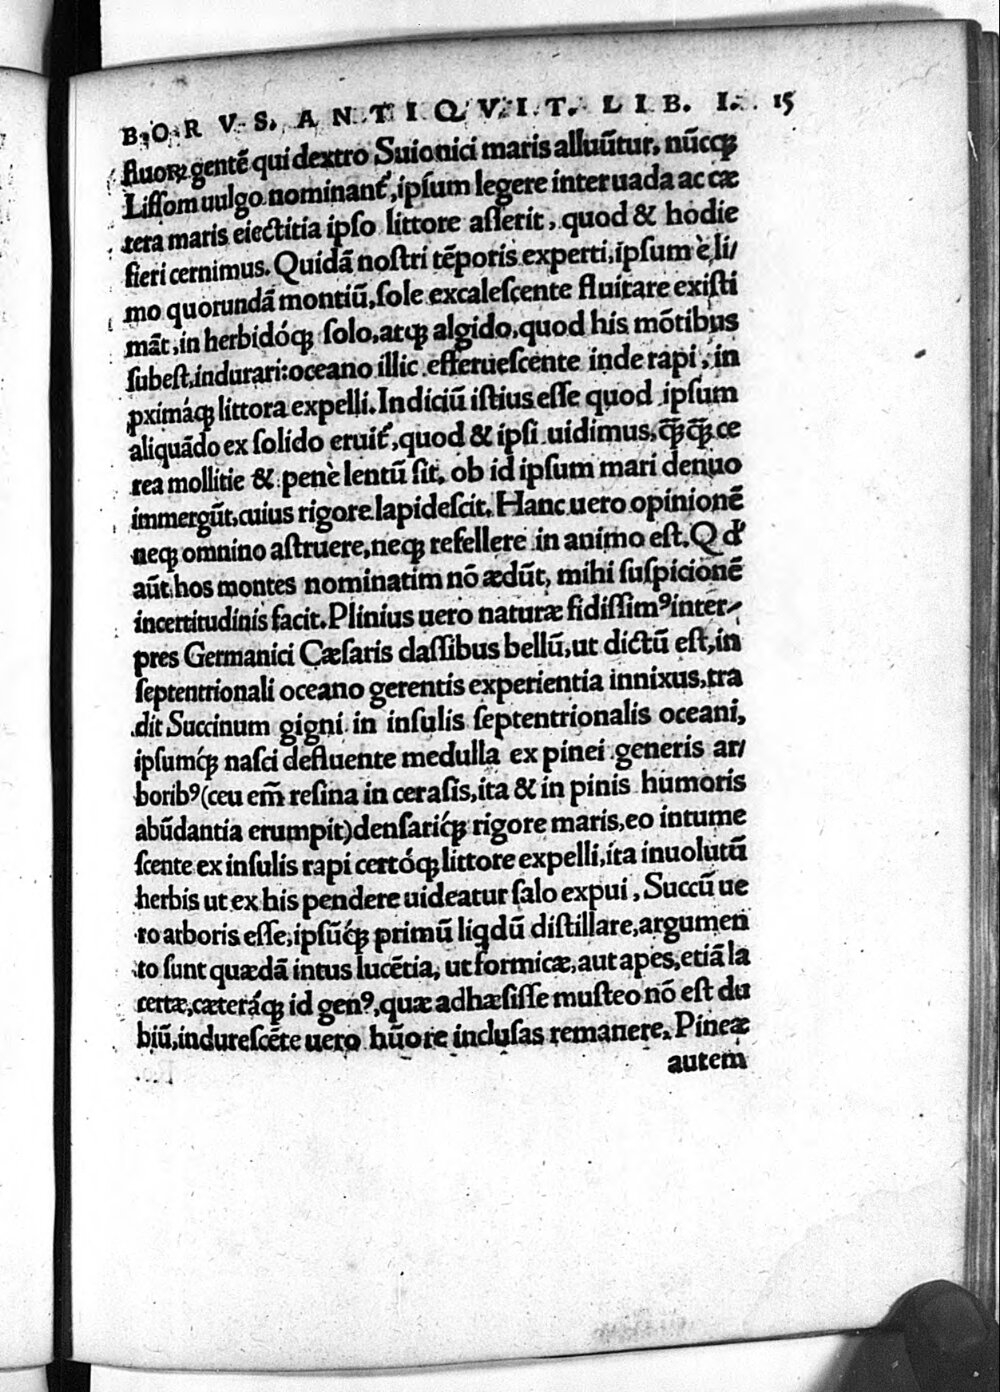 BORVS. ANTIQVIT. LIB. I. 15
ſtuoꝝ gentē qui dextro Suionici maris alluūtur, nūcꝙ
Liſſom uulgo nominant᷑, ipſum legere inter uada ac cæ
tera maris eiectitia ipſo littore aſſerit, quod & hodie
fieri cernimus. Quidā noſtri tēporis experti, ipſum è li/
mo quorundā montiū, ſole excaleſcente fluitare exiſti
māt, in herbidóꝙ ſolo, atꝙ algido, quod his mōtibus
ſubeſt, indurari: oceano illic efferueſcente inde rapi, in
ꝓximáꝙ littora expelli. Indiciū iſtius eſſe quod ipſum
aliquādo ex ſolido eruit᷑, quod & ipſi uidimus, ꝙ̄ꝙ̄ ce
rea mollitie & penè lentū ſit, ob id ipſum mari denuo
immergūt, cuius rigore lapideſcit. Hanc uero opinionē
neꝙ omnino aſtruere, neꝙ refellere in animo eſt. Qđ
aūt hos montes nominatim nō ædūt, mihi ſuſpicionē
incertitudinis facit. Plinius uero naturæ fidiſſimꝰ inter/
pres Germanici Cæſaris claſſibus bellū, ut dictū eſt, in
ſeptentrionali oceano gerentis experientia innixus, tra
dit Succinum gigni in inſulis ſeptentrionalis oceani,
ipſumq́ꝫ naſci defluente medulla ex pinei generis ar/
boribꝰ (ceu em̄ reſina in ceraſis, ita & in pinis humoris
abūdantia erumpit) denſariq́ꝫ rigore maris, eo intume
ſcente ex inſulis rapi certóꝙ littore expelli, ita inuolutū
herbis ut ex his pendere uideatur ſalo expui, Succū ue
ro arboris eſſe, ipſūq́ꝫ primū liqdū diſtillare, argumen
to ſunt quædā intus lucētia, ut formicæ, aut apes, etiā la
certæ, cæteráꝙ id genꝰ, quæ adhæſiſſe muſteo nō eſt du
biū, indureſcēte uero hūore incluſas remanere. Pineæ
autem